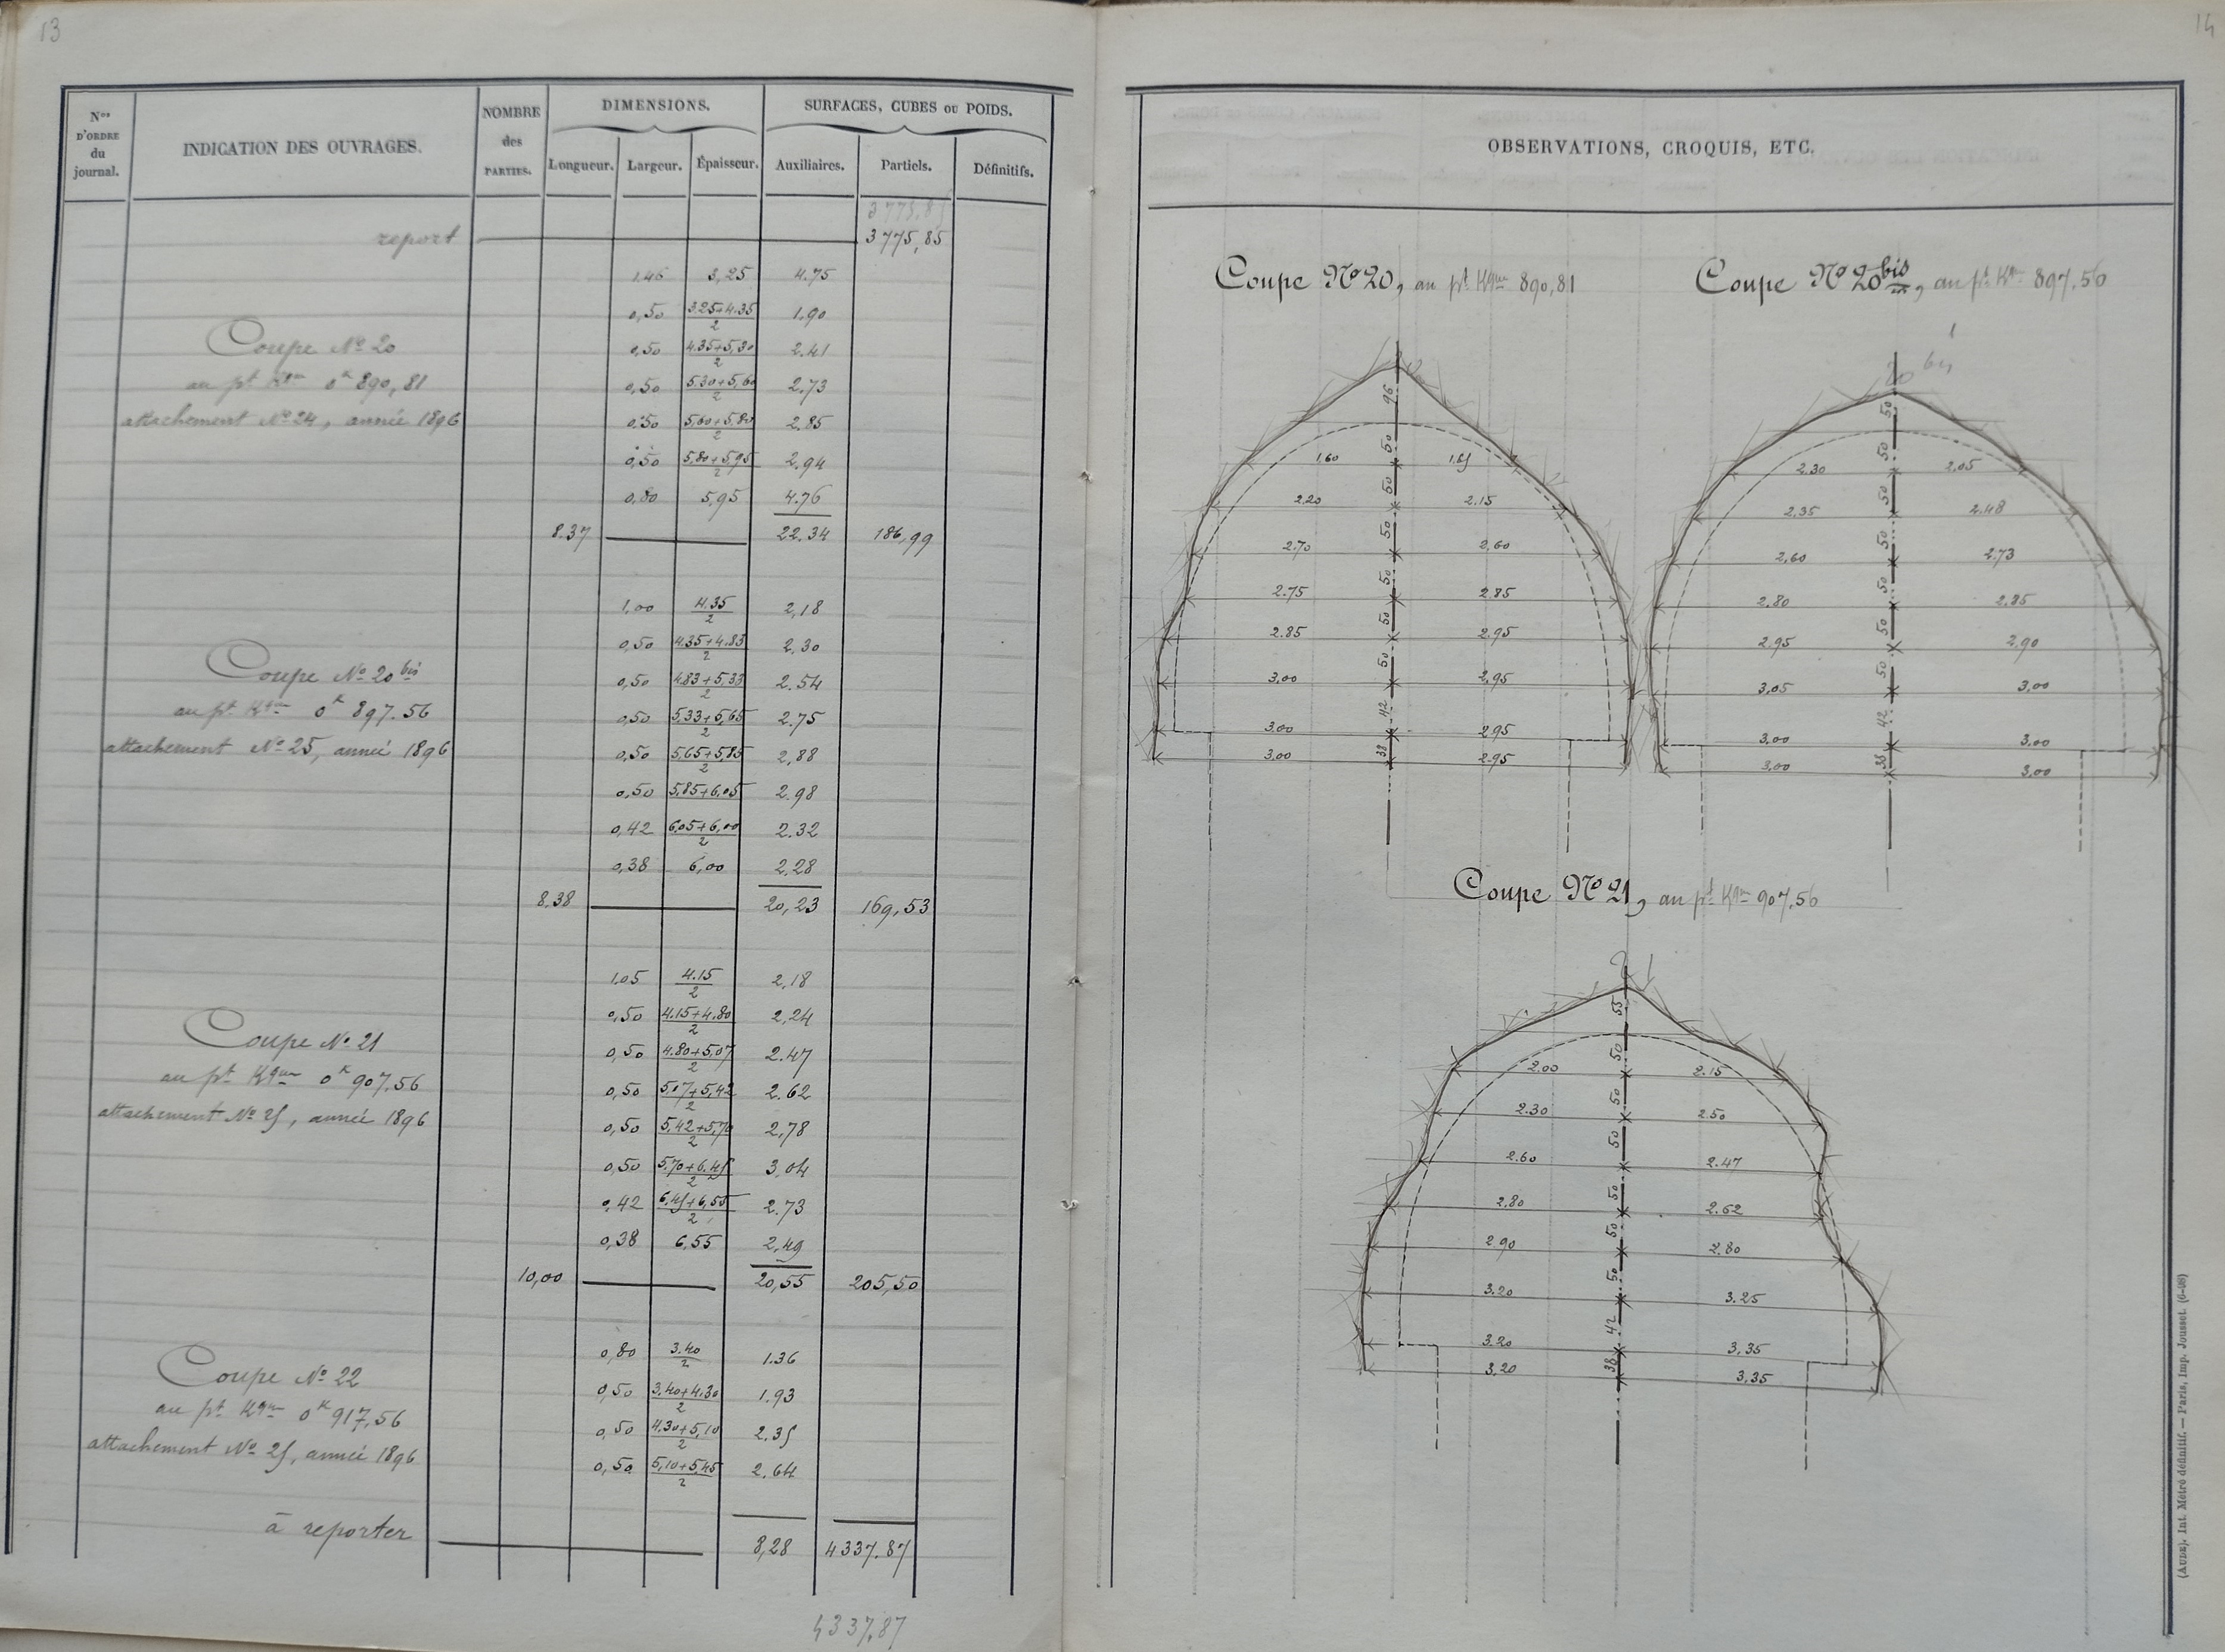 13
Nos D'ORDRE du journal.
INDICATION DES OUVRAGES.
NOMBRE des PARTIES.
DIMENSIONS.
Longueur. Largeur. Épaisseur.
SURFACES, CUBES ou POIDS.
Auxiliaires. Partiels. Définitifs.
3775,85
report 3775,85
1.46 3,25 4.75
0,50 3.25+4.35/2 1.90
Coupe No 20 0,50 4.35+5,30/2 2.41
au pt Kqm 0k 890,81 0,50 5.30+5,60/2 2.73
attachement No 24, année 1896 0,50 5,60+5,80/2 2.85
0,50 5,80+5,95/2 2.94
0,80 5,95 4.76
8.37 22.34 186,99
1,00 4.35/2 2,18
0,50 4.35+4.83/2 2,30
Coupe No 20 bis 0,50 4.83+5,33/2 2.54
au pt Kqm 0k 897.56 0,50 5,33+5,65/2 2.75
attachement No 25, année 1896 0,50 5,65+5,85/2 2,88
0,50 5,85+6,05/2 2.98
0,42 6,05+6,00/2 2.32
0,38 6,00 2,28
8,38 20,23 169,53
1,05 4.15/2 2,18
0,50 4.15+4.80/2 2,24
Coupe No 21 0,50 4.80+5,07/2 2.47
au pt Kqm 0k 907,56 0,50 5,07+5,42/2 2.62
attachement No 25, année 1896 0,50 5,42+5,70/2 2,78
0,50 5,70+6.45/2 3,04
0,42 6,45+6,55/2 2.73
0,38 6,55 2,49
10,00 20,55 205,50
0,80 3.40/2 1.36
Coupe No 22 0,50 3,40+4.30/2 1.93
au pt Kqm 0k 917,56 0,50 4.30+5,10/2 2.35
attachement No 25, année 1896 0,50 5,10+5,45/2 2.64
à reporter 8,28 4337.87
4337,87
14
OBSERVATIONS, CROQUIS, ETC.
Coupe No 20, au pt Kqm 890,81
96
50
1,60 1.85
50
2.20 2.15
50
2.70 2,60
50
2.75 2.85
50
2.85 2.95
50
3,00 2,95
42
3.00 2.95
38
3.00 2.95
Coupe No 20 bis, au pt Km 897,56
20 bis
50
50
2.30 2,05
50
2,35 2.48
50
2,60 2.73
50
2.80 2.85
50
2.95 2.90
50
3,05 3,00
42
3,00 3,00
38
3,00 3,00
Coupe No 21, au pt Kqm 907.56
55
50
2.00 2.15
50
2.30 2.50
50
2.60 2.47
50
2,80 2.62
50
2.90 2.80
50
3.20 3.25
42
3.20 3,35
38
3,20 3.35
(AUDE). Int. Métré définitif. — Paris, Imp. Jousset. (6-98)